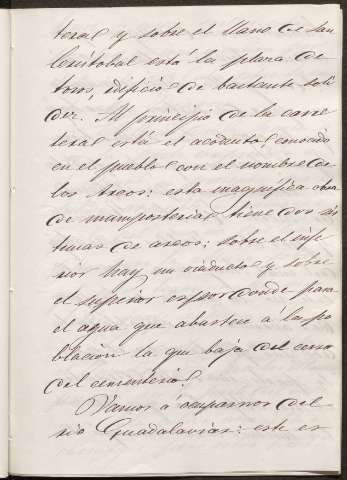 teral y sobre el llano de San
Cristobal está la plaza de
toros, edificio de bastante soli
dez. Al principio de la carre
tera está el acoducto conocido
en el pueblo con el nombre de
los Arcos: esta magnífica obra
de mamposteria tiene dos sis
temas de arcos; sobre el infe
rior hay un viaducto y sobre
el superior es por donde pasa
el agua que abastece á la po
blacion la que baja del cerro
del cementerio.
Vamos á ocuparnos del
rio Guadalaviar: este es